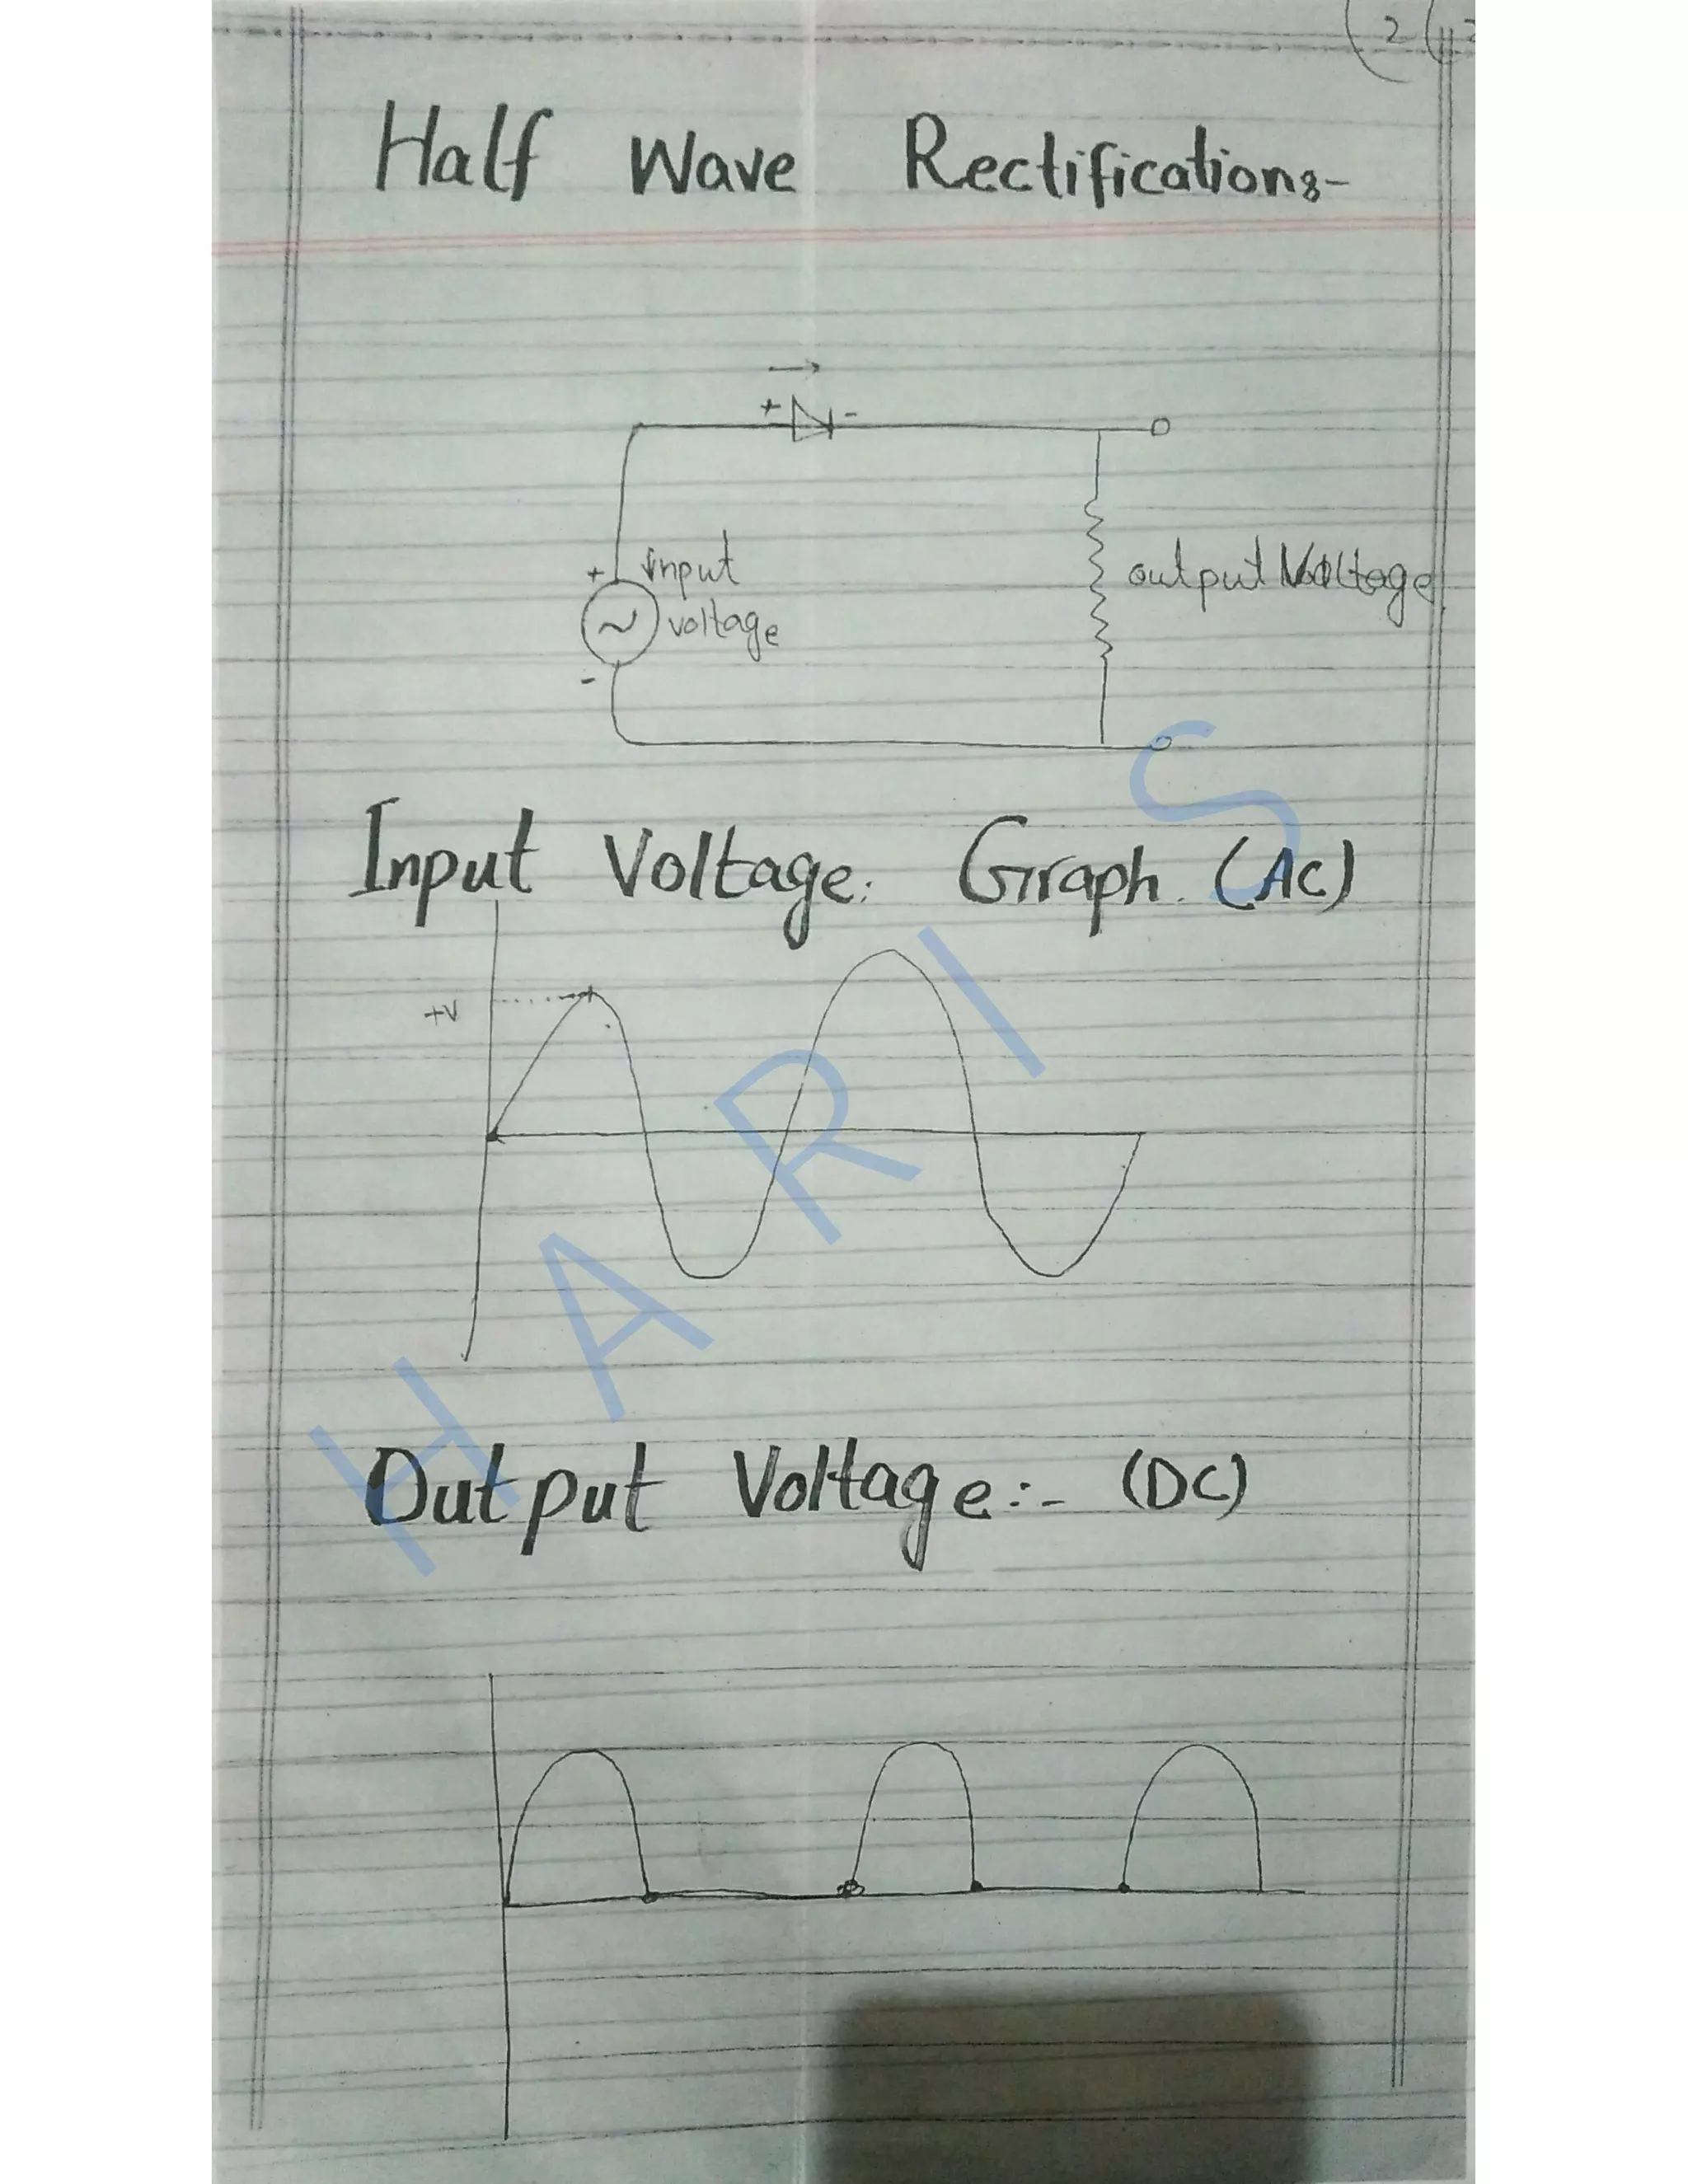 2
Half Wave Rectification:-
+ -
+ input
voltage
-
output Voltage
Input Voltage: Graph. (AC)
+V
Output Voltage:- (DC)
HARIS